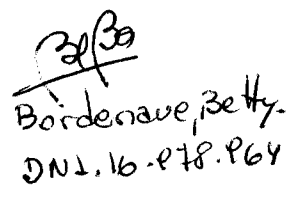 Bordenave, Betty.
DNI. 16.978.964